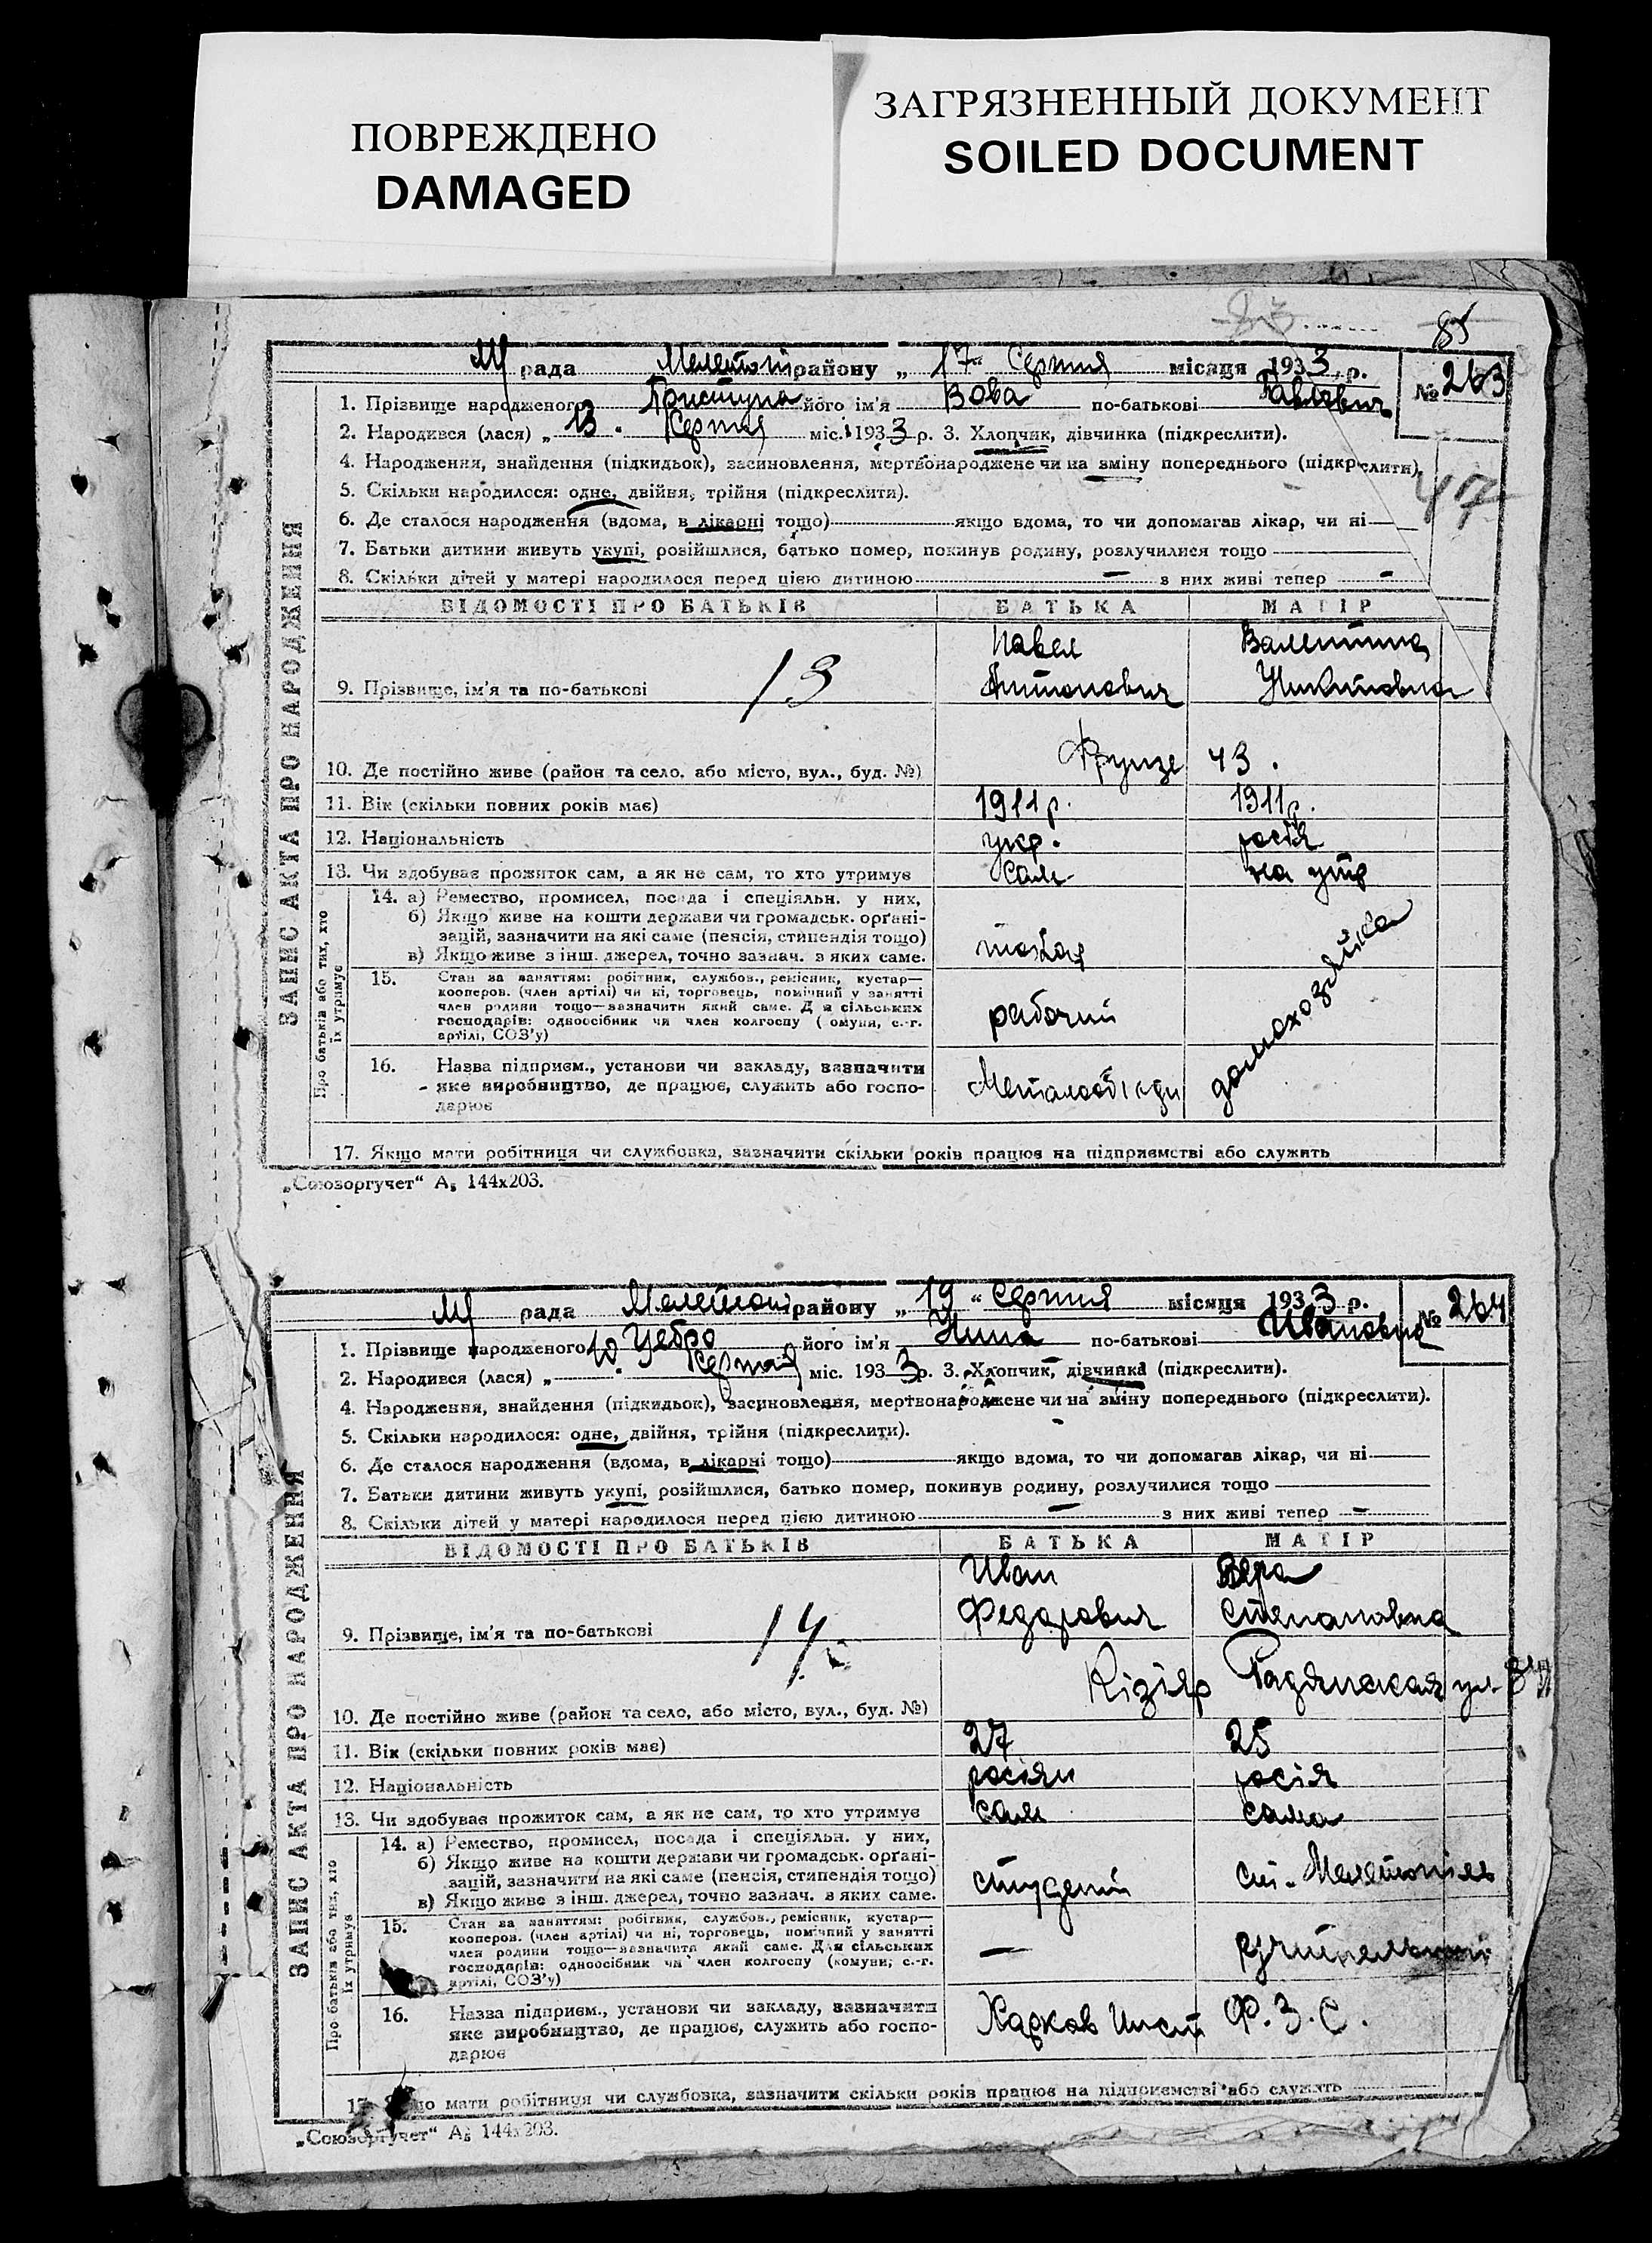 ПОВРЕЖДЕНО
DAMAGED
ЗАГРЯЗНЕННЫЙ ДОКУМЕНТ
SOILED DOCUMENT
85
ЗАПИС АКТА ПРО НАРОДЖЕННЯ
рада Мелітоп району „17" Серпня місяця 1933 р. № 263
1. Прізвище народженого Приступа його ім'я Вова по-батькові Павлович
2. Народився (лася) „13. Серпня міс. 1933 р. 3. Хлопчик, дівчинка (підкреслити).
4. Народження, знайдення (підкидьок), засиновлення, мертвонароджене чи на зміну попереднього (підкреслити).
47
5. Скільки народилося: одне, двійня, трійня (підкреслити).
6. Де сталося народження (вдома, в лікарні тощо) якщо вдома, то чи допомагав лікар, чи ні
7. Батьки дитини живуть укупі, розійшлися, батько помер, покинув родину, розлучилися тощо
8. Скільки дітей у матері народилося перед цією дитиною — з них живі тепер —
ВІДОМОСТІ ПРО БАТЬКІВ БАТЬКА МАТІР
9. Прізвище, ім'я та по-батькові 13 Павел Антонович Валентина Никитовна
10. Де постійно живе (район та село, або місто, вул., буд. №) Фрунзе 43.
11. Вік (скільки повних років має) 1911 р. 1911 р.
12. Національність укр. росія
13. Чи здобуває прожиток сам, а як не сам, то хто утримує сам на утр
Про батьків або тих, хто їх утримує
14. а) Ремество, промисел, посада і спеціяльн. у них,
б) Якщо живе на кошти держави чи громадськ. орґані-
зацій, зазначити на які саме (пенсія, стипендія тощо)
в) Якщо живе з інш. джерел, точно зазнач. з яких саме.
токар домохозяйка
15. Стан за заняттям: робітник, службов., ремісник, кустар—
кооперов. (член артілі) чи ні, торговець, помічний у занятті
член родини тощо—зазначити який саме. Для сільських
господарів: одноосібник чи член колгоспу (комуни, с.-г.
артілі, СОЗ'у)
рабочий
16. Назва підприєм., установи чи закладу, зазначити
яке виробництво, де працює, служить або госпо-
дарює
17. Якщо мати робітниця чи службовка, зазначити скільки років працює на підприємстві або служить
„Союзоргучет" А5 144х203.
ЗАПИС АКТА ПРО НАРОДЖЕННЯ
рада Мелітоп району „19" Серпня місяця 1933 р. № 264
1. Прізвище народженого Цебро його ім'я Нина по-батькові Ивановна
2. Народився (лася) „10. Серпня міс. 1933 р. 3. Хлопчик, дівчинка (підкреслити).
4. Народження, знайдення (підкидьок), засиновлення, мертвонароджене чи на зміну попереднього (підкреслити).
5. Скільки народилося: одне, двійня, трійня (підкреслити).
6. Де сталося народження (вдома, в лікарні тощо) якщо вдома, то чи допомагав лікар, чи ні
7. Батьки дитини живуть укупі, розійшлися, батько помер, покинув родину, розлучилися тощо
8. Скільки дітей у матері народилося перед цією дитиною — з них живі тепер —
ВІДОМОСТІ ПРО БАТЬКІВ БАТЬКА МАТІР
9. Прізвище, ім'я та по-батькові 14 Иван Федорович Вера Степановна
10. Де постійно живе (район та село, або місто, вул., буд. №) Кізіяр Радянская ул.
11. Вік (скільки повних років має) 27 25
12. Національність росіян росія
13. Чи здобуває прожиток сам, а як не сам, то хто утримує сам сама
Про батьків або тих, хто їх утримує
14. а) Ремество, промисел, посада і спеціяльн. у них,
б) Якщо живе на кошти держави чи громадськ. орґані-
зацій, зазначити на які саме (пенсія, стипендія тощо)
в) Якщо живе з інш. джерел, точно зазнач. з яких саме.
студент ст. Мелітопіль
15. Стан за заняттям: робітник, службов., ремісник, кустар—
кооперов. (член артілі) чи ні, торговець, помічний у занятті
член родини тощо—зазначити який саме. Для сільських
господарів: одноосібник чи член колгоспу (комуни, с.-г.
артілі, СОЗ'у)
—
16. Назва підприєм., установи чи закладу, зазначити
яке виробництво, де працює, служить або госпо-
дарює
Харков Инст Ф.З.С.
17. Якщо мати робітниця чи службовка, зазначити скільки років працює на підприємстві або служить
„Союзоргучет" А5 144х203.